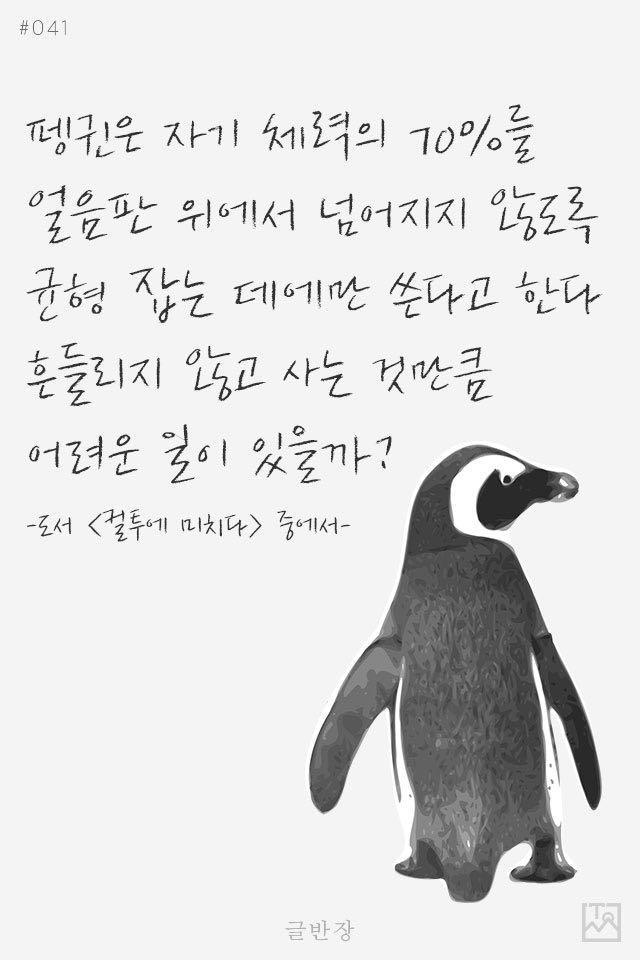 #041
펭귄은 자기 체력의 70%를
얼음판 위에서 넘어지지 않도록
균형 잡는 데에만 쓴다고 한다
흔들리지 않고 사는 것만큼
어려운 일이 있을까?
-도서 <컬투에 미치다> 중에서-
글반장